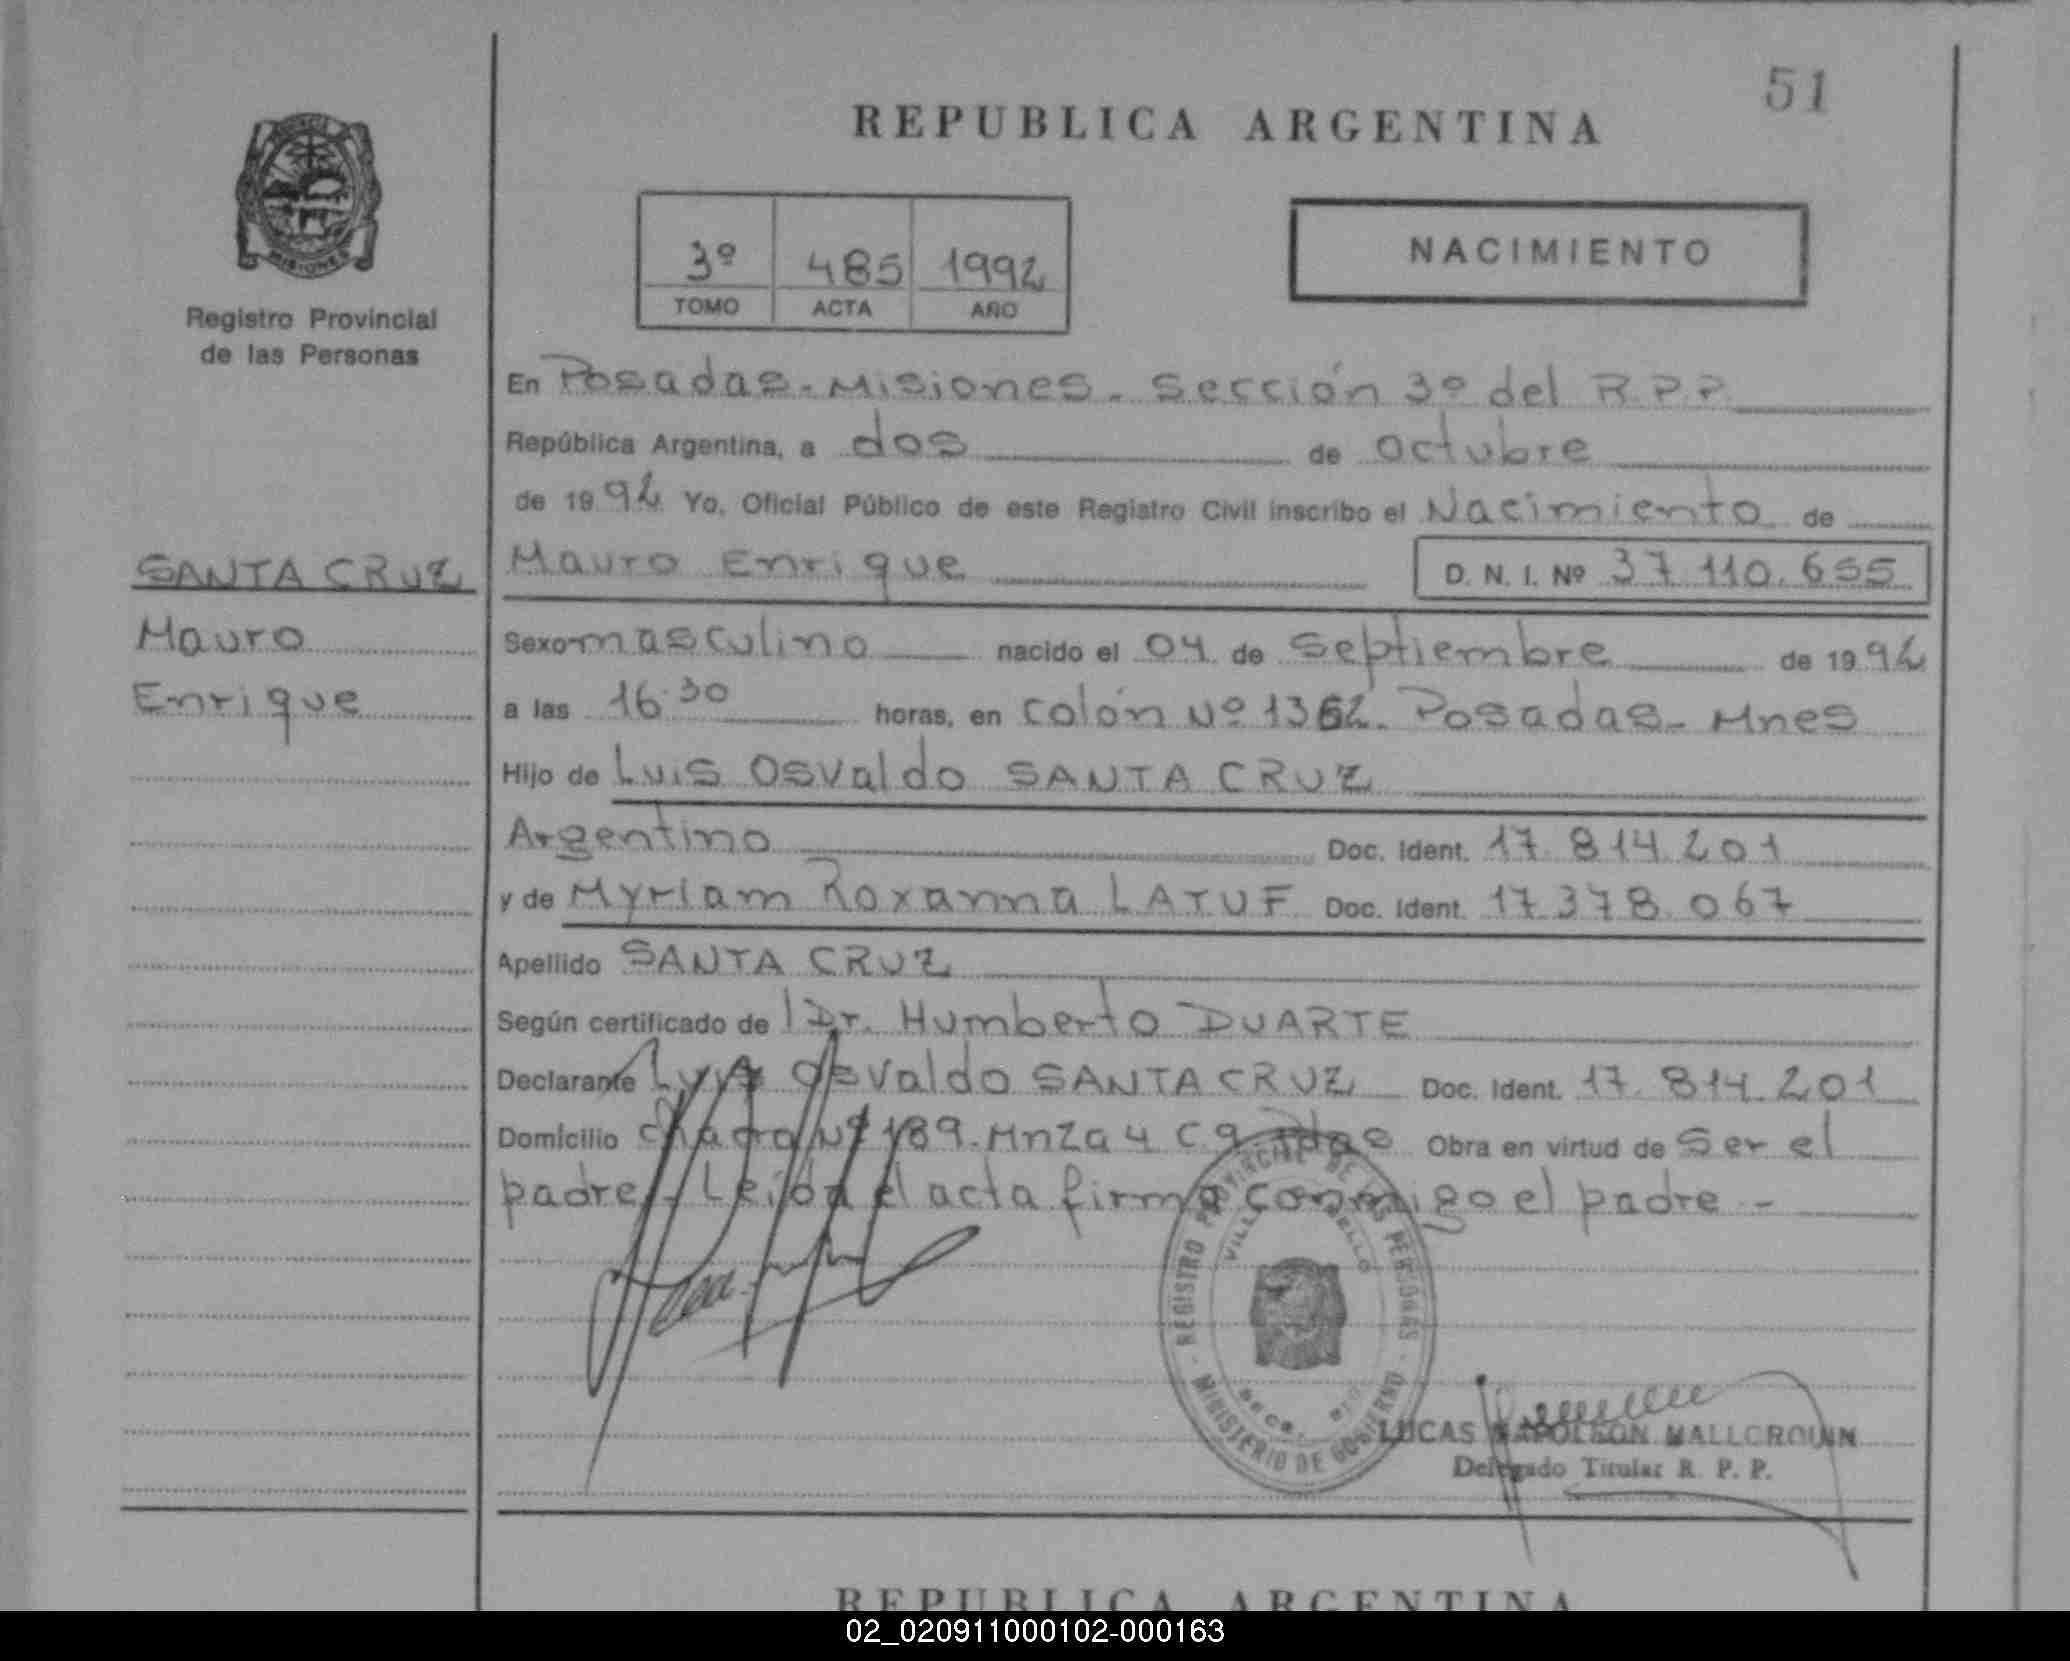 51
REPUBLICA ARGENTINA
MISIONES
Registro Provincial
de las Personas
3º 485 1992
TOMO ACTA AÑO
NACIMIENTO
En Posadas-Misiones-Sección 3º del R.P.P.
República Argentina, a dos de octubre
de 1992 Yo, Oficial Público de este Registro Civil inscribo el Nacimiento de
SANTA CRUZ
Mauro
Enrique
Mauro Enrique D. N. I. Nº 37 110.655
Sexo masculino nacido el 04 de septiembre de 1992
a las 16:30 horas, en colón Nº 1362. Posadas-Mnes
Hijo de Luis Osvaldo SANTA CRUZ
Argentino Doc. Ident. 17.814.201
y de Myriam Roxanna LATUF Doc. Ident. 17.378.067
Apellido SANTA CRUZ
Según certificado de Dr. Humberto DUARTE
Declarante Luis Osvaldo SANTA CRUZ Doc. Ident. 17.814.201
Domicilio chacra Nº 189. Mnza 4 C9 Pdas Obra en virtud de ser el
padre.- Leída el acta firma conmigo el padre -
REGISTRO PROVINCIAL DE LAS PERSONAS
MINISTERIO DE GOBIERNO
LUCAS NAPOLEON
Delegado Titular R. P. P.
REPUBLICA ARGENTINA
02_020911000102-000163